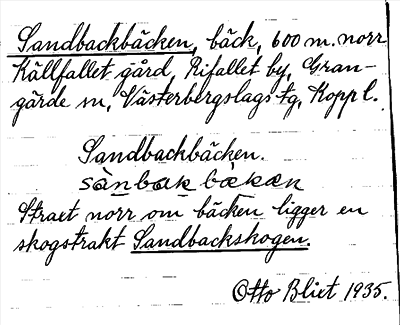 Sandbackbäcken, bäck, 600 m. norr
Källfallet gård, Rifallet by, Gran-
gärde sn, Västerbergslags tg, Koppl.
Sandbackbäcken.
sànbak bækæn
Straet norr om bäcken ligger en
skogstrakt Sandbackskogen.
Otto Blixt 1935.